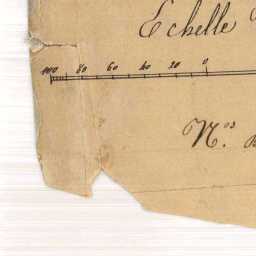 Echelle
100 80 60 40 20 0
N.os